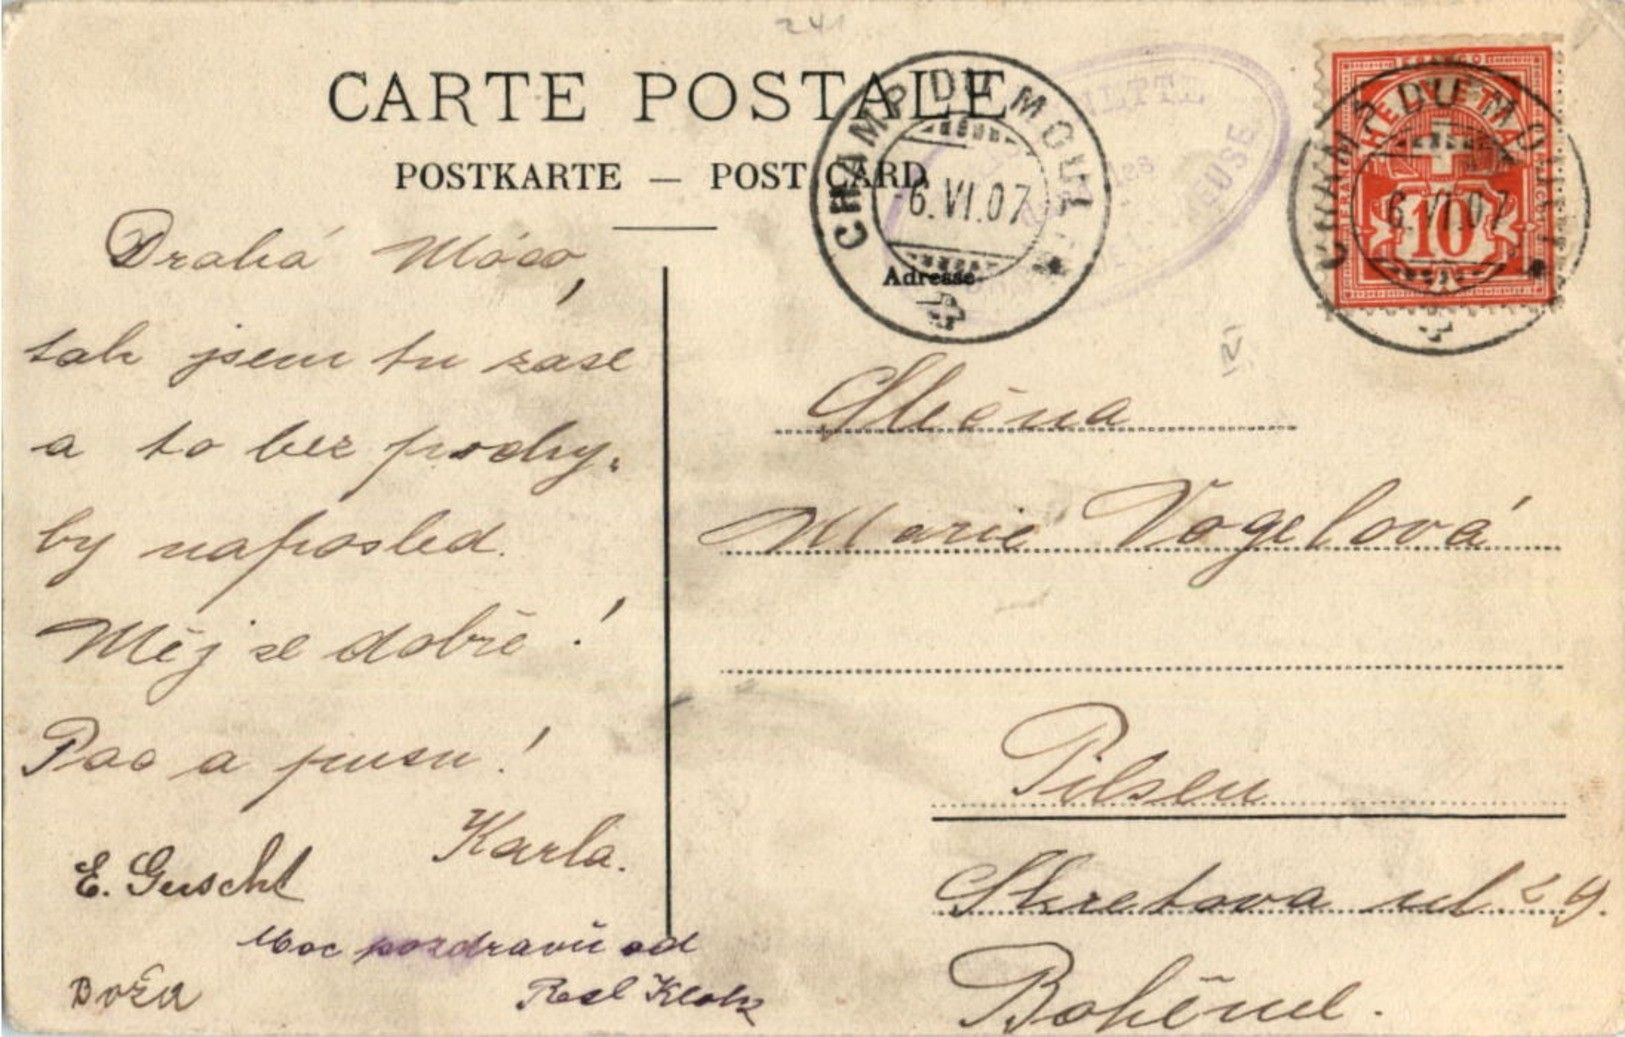 241
CARTE POSTALE
POSTKARTE — POST CARD
CHAMP DU MOULIN
6.VI.07
Adresse
HELVETIA
10
CHAMP DU MOULIN
6.VI.07
Drahá
tak jsem tu zase
a to bez pochy-
by naposled.
Měj se dobře!
Pac a pusu!
Karla.
E. Guscht
Moc pozdravů od
Resl
Boža
IV
Slečna
Marie Vogelová
Pilsen
Skretova ul
Bohême.